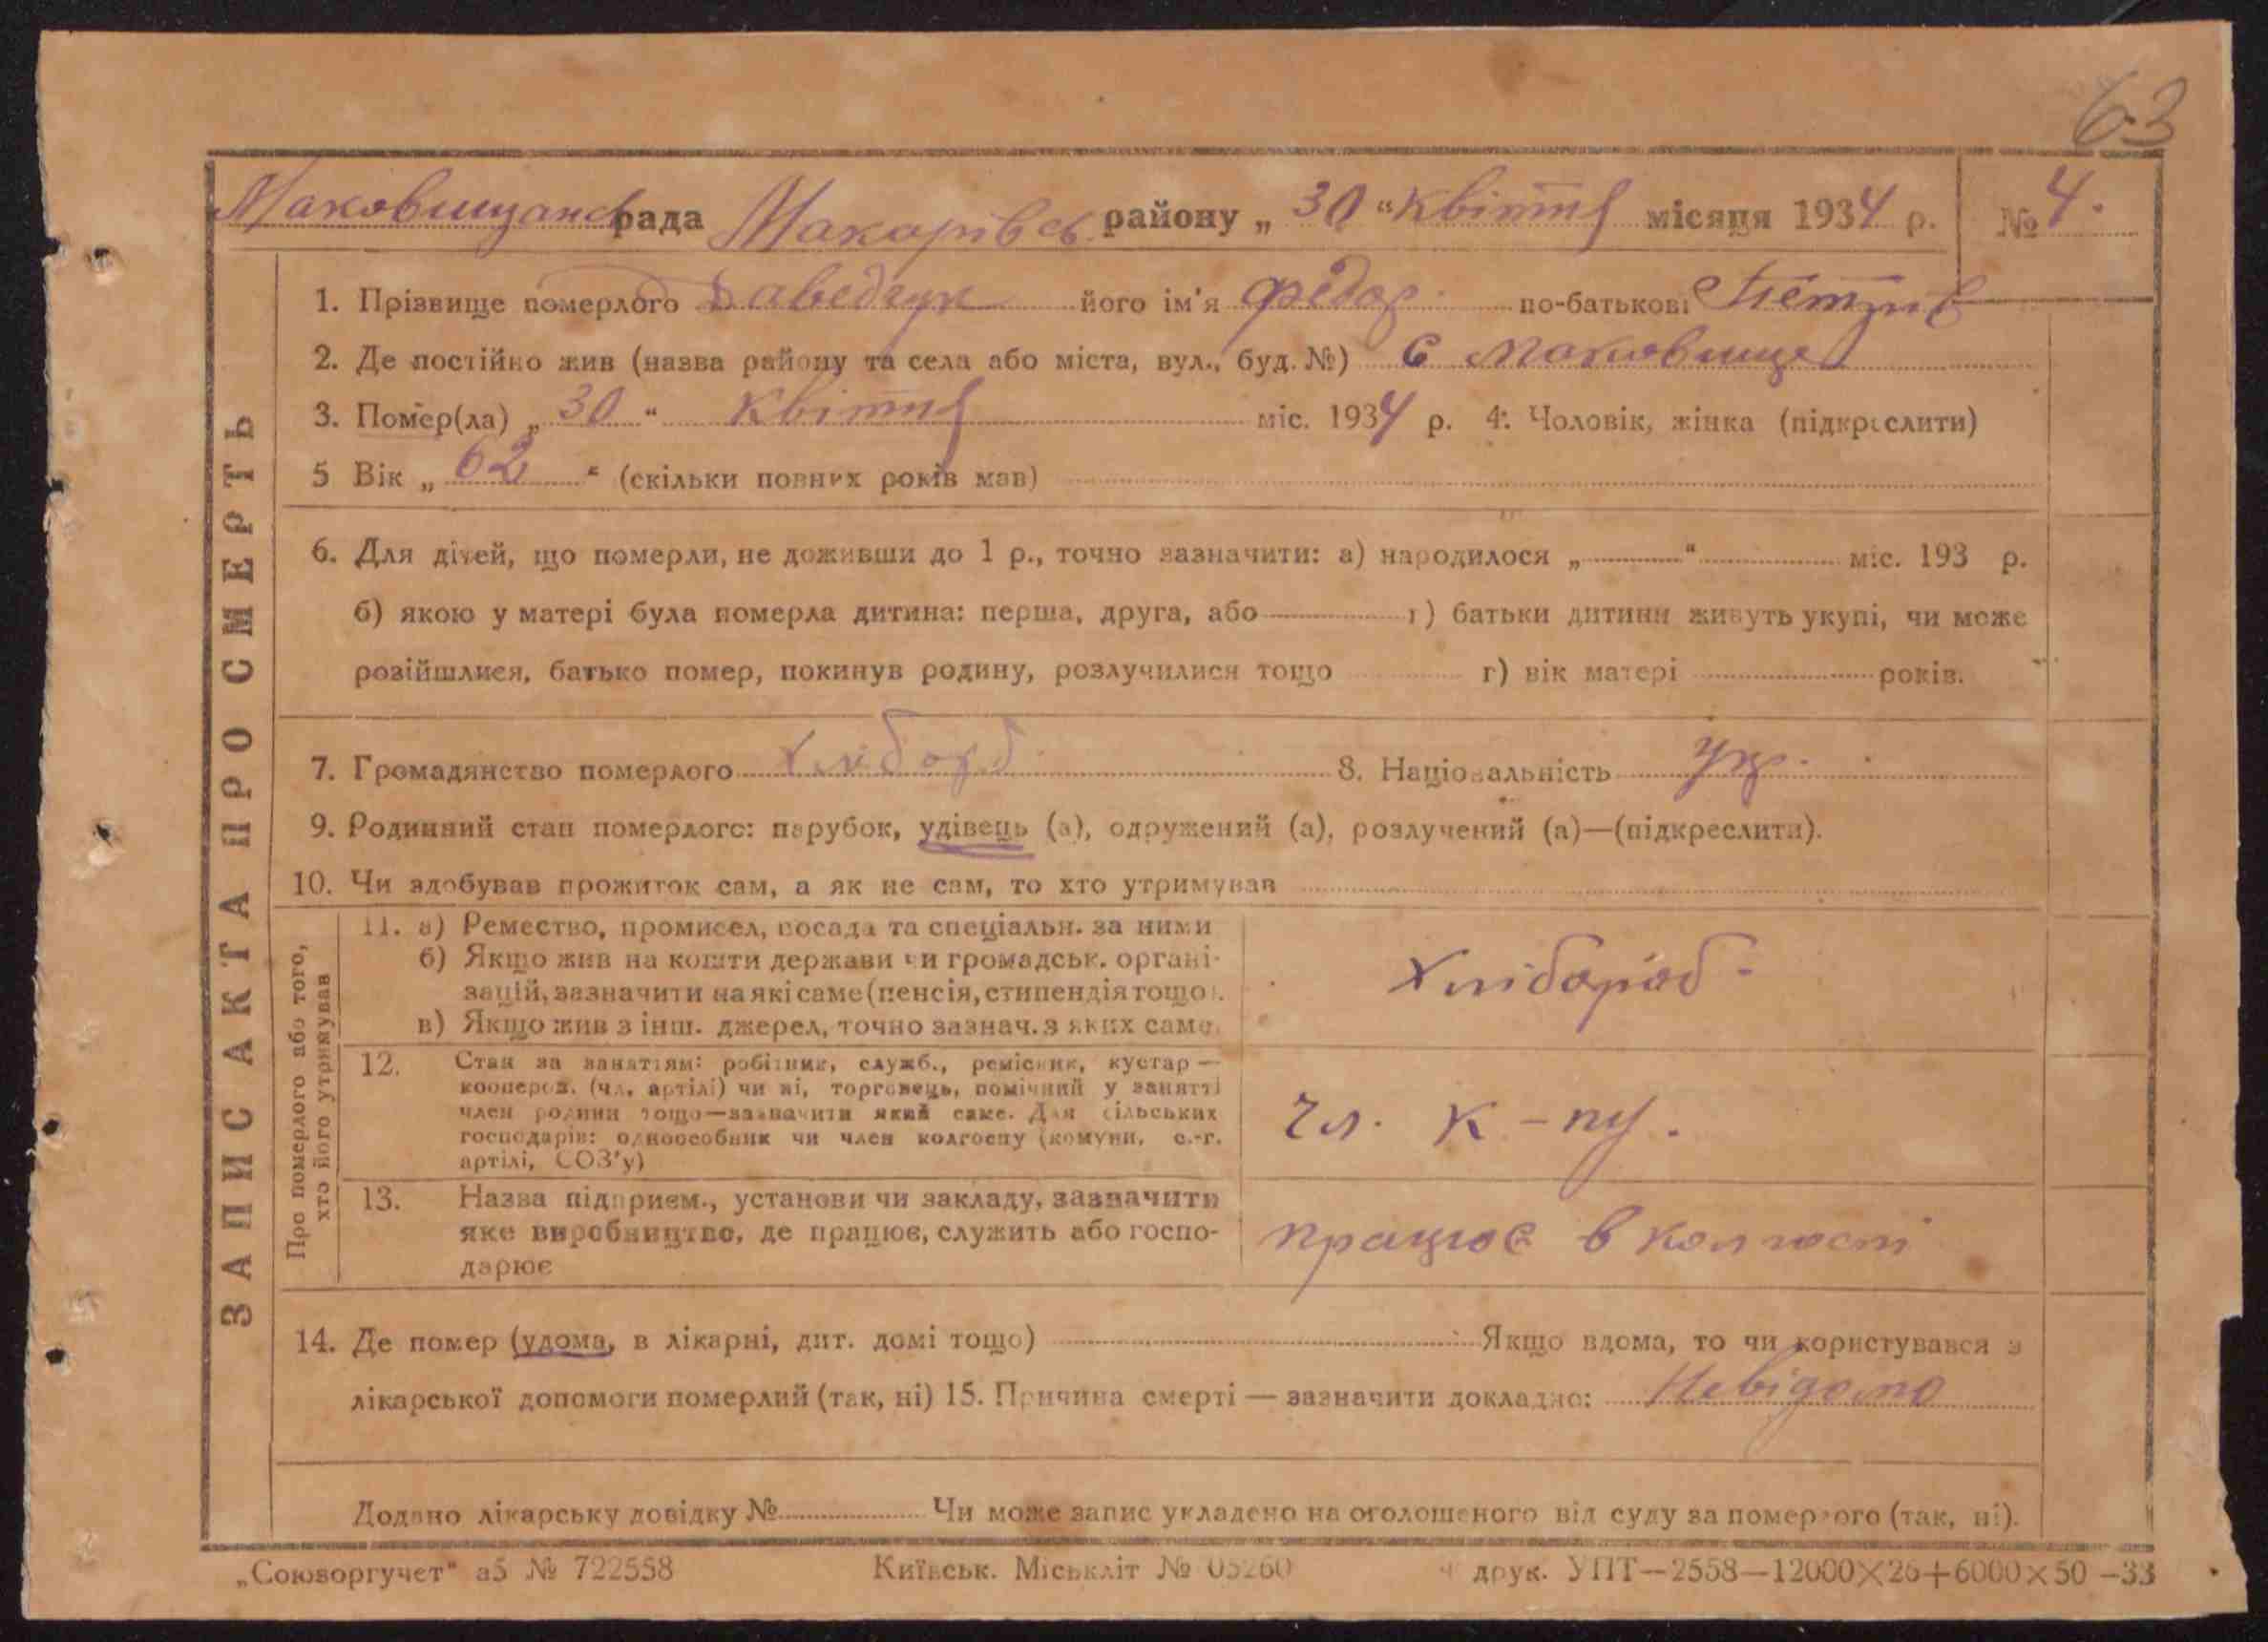 63
Маковищанськ рада Макарівськ району „ 30 “ квітня місяця 1934 р. № 4.
1. Прізвище померлого Даведчук його ім'я Федор по-батькові Петров
2. Де постійно жив (назва району та села або міста, вул., буд. №) с Маковище
3. Помер(ла) „ 30 “ Квітня міс. 1934 р. 4. Чоловік, жінка (підкреслити)
5 Вік „ 62 “ (скільки повних років мав)
6. Для дітей, що померли, не доживши до 1 р., точно зазначити: а) народилося „ “ міс. 193 р.
б) якою у матері була померла дитина: перша, друга, або г) батьки дитини живуть укупі, чи може
розійшлися, батько помер, покинув родину, розлучилися тощо г) вік матері років.
7. Громадянство померлого Хлібороб 8. Національність Укр.
9. Родинний стан померлого: парубок, удівець (а), одружений (а), розлучений (а)—(підкреслити).
10. Чи здобував прожиток сам, а як не сам, то хто утримував
ЗАПИС АКТА ПРО СМЕРТЬ
Про померлого або того,
хто його утримував
11. а) Ремество, промисел, посада та спеціальн. за ними
б) Якщо жив на кошти держави чи громадськ. органі-
зацій, зазначити на які саме (пенсія, стипендія тощо).
в) Якщо жив з інш. джерел, точно зазнач. з яких саме
Хлібороб
12. Стан за заняттям: робітник, служб., ремісник, кустар —
кооперов. (чл. артілі) чи ні, торговець, помічний у занятті
член родини тощо—зазначити який саме. Для сільських
господарів: одноособник чи член колгоспу (комуни, с.-г.
артілі, СОЗ'у)
чл. к-пу.
13. Назва підприєм., установи чи закладу, зазначити
яке виробництво, де працює, служить або госпо-
дарює
працює в колгоспі
14. Де помер (удома, в лікарні, дит. домі тощо) Якщо вдома, то чи користувався з
лікарської допомоги померлий (так, ні) 15. Причина смерті — зазначити докладно: Невідомо
Додано лікарську довідку № Чи може запис укладено на оголошеного від суду за померлого (так, ні).
„Союзоргучет“ а5 № 722558 Київськ. Міськліт № 05260 друк. УПТ—2558—12000×26+6000×50 —33